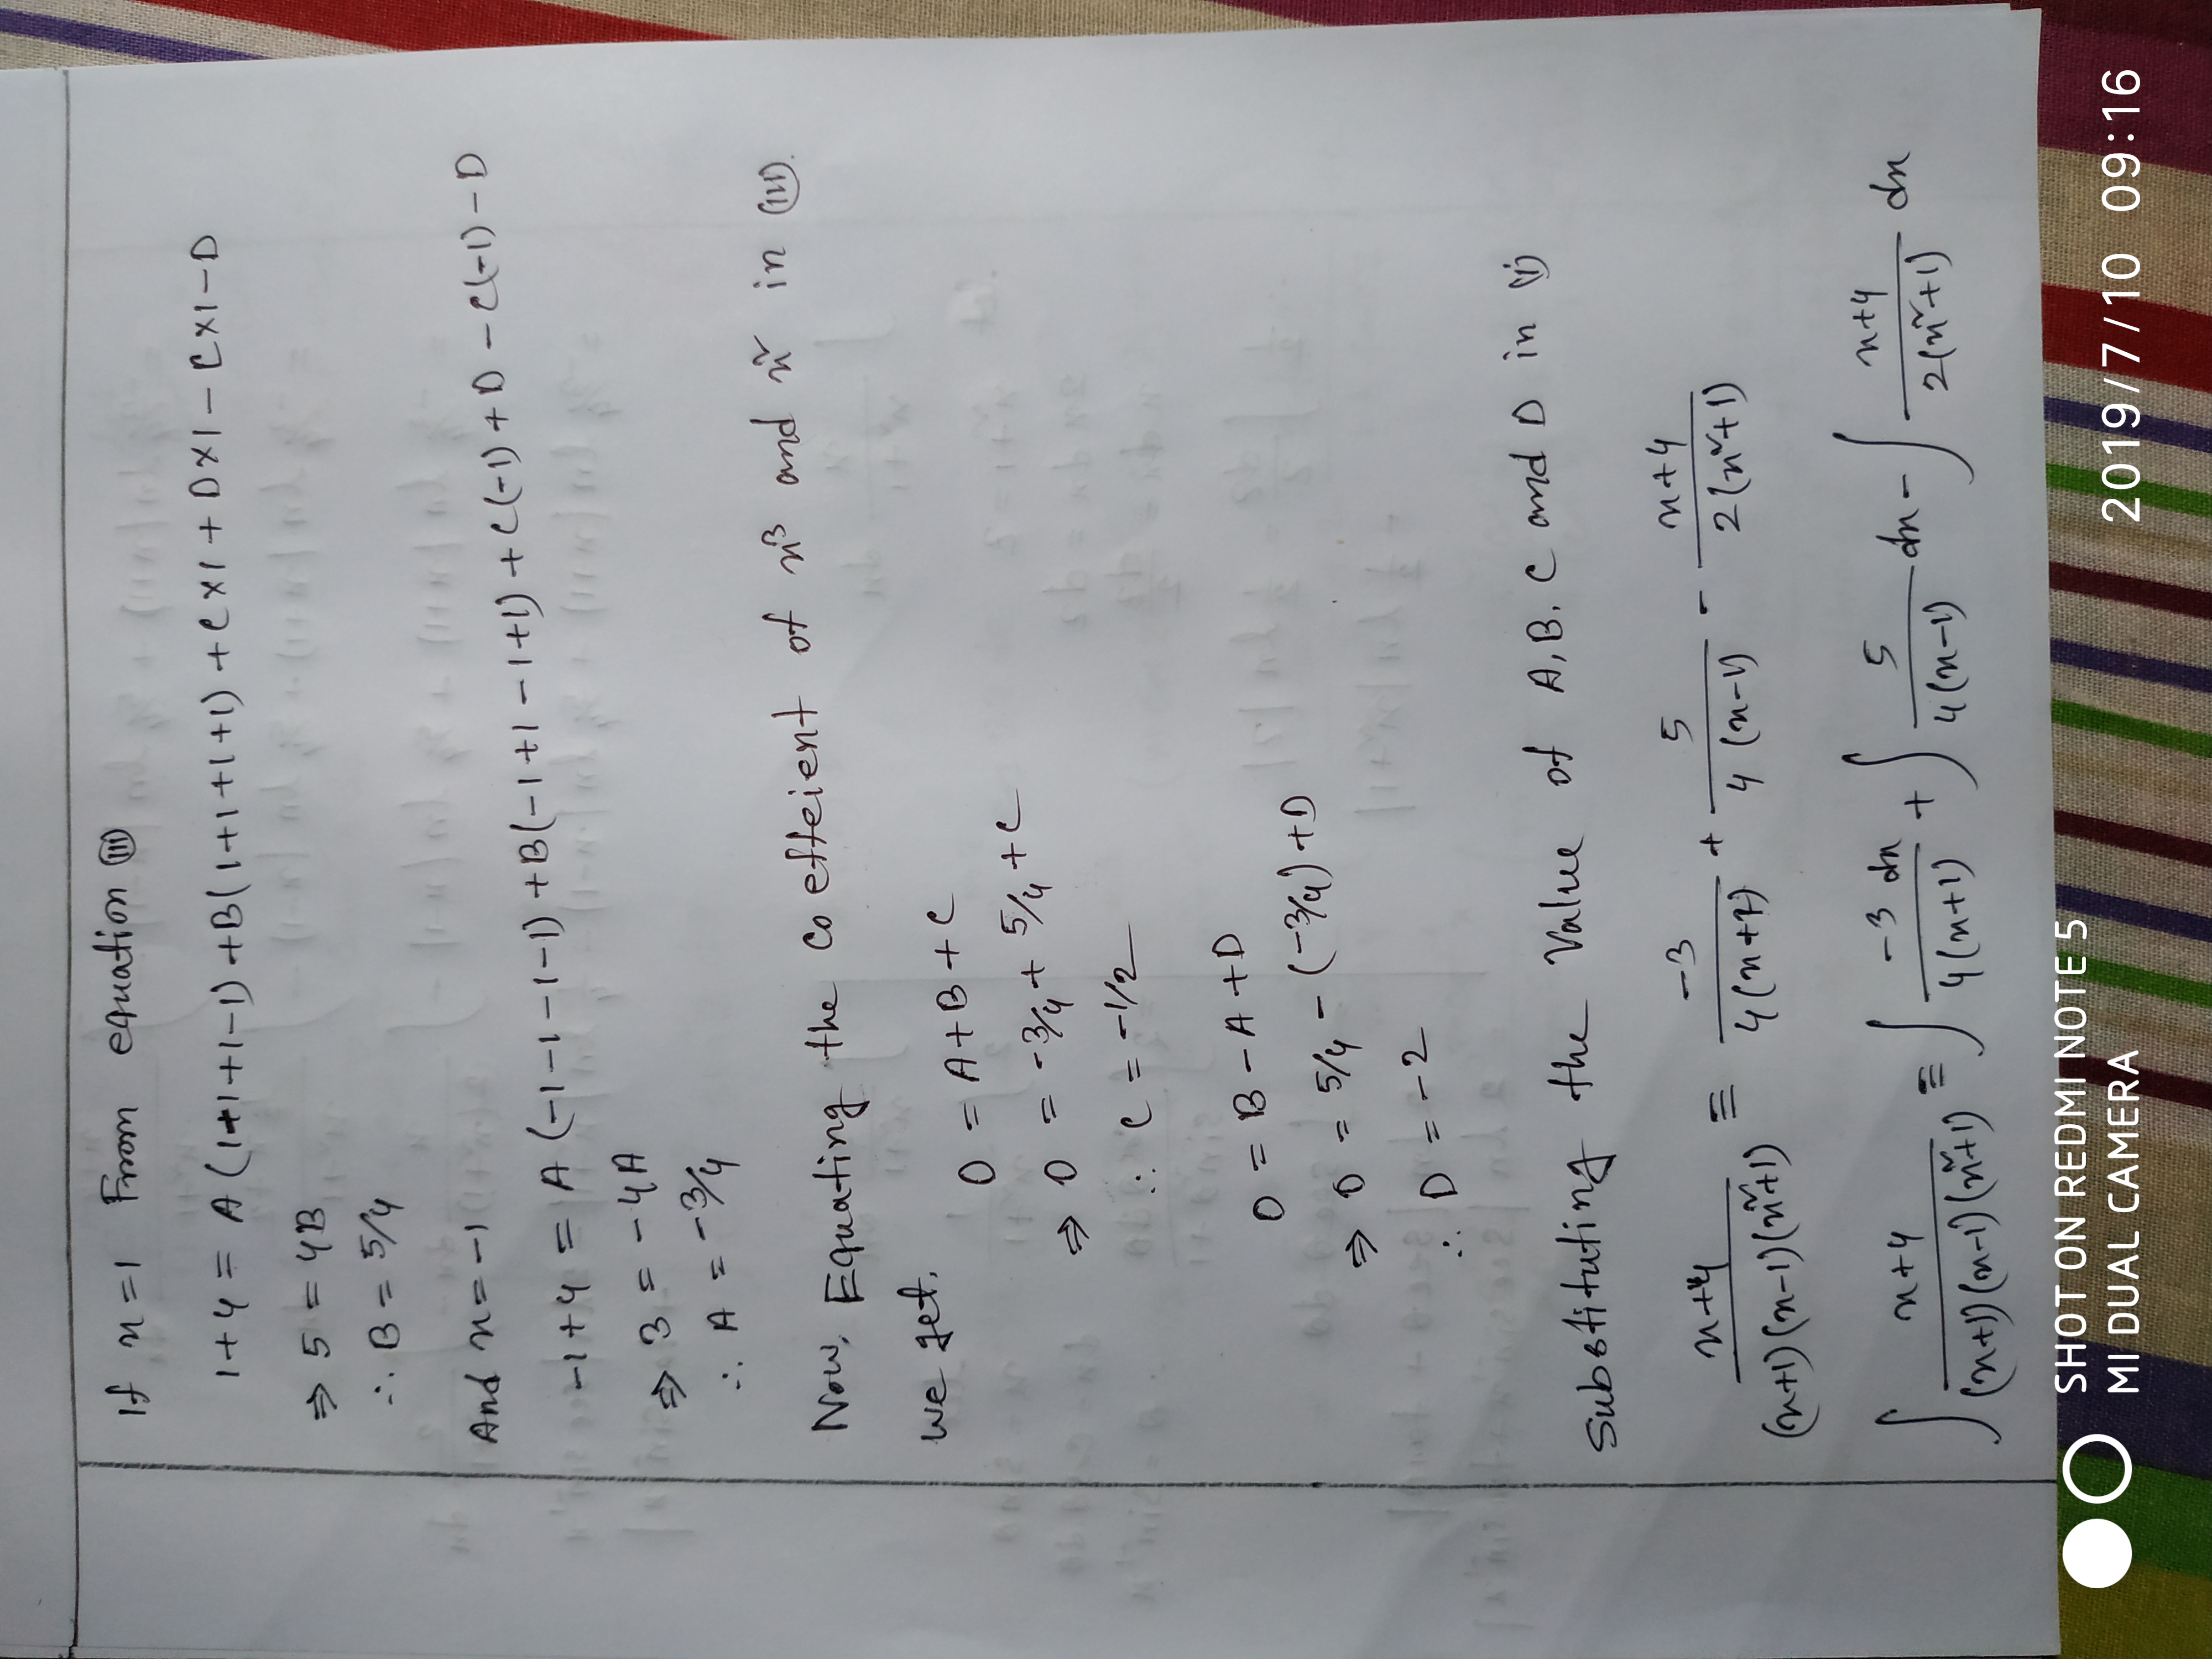 If x=1 From equation (III)
1+4 = A(1+1+1-1)+B(1+1+1+1)+C×1+D×1-C×1-D
⇒ 5 = 4B
∴ B = 5/4
And x=-1
-1+4 = A(-1-1-1-1)+B(-1+1-1+1)+C(-1)+D-C(-1)-D
⇒ 3 = -4A
∴ A = -3/4
Now, Equating the coeffeient of x³ and x² in (III).
we get,
0 = A+B+C
⇒ 0 = -3/4+ 5/4+C
∴ C = -1/2
0 = B-A+D
⇒ 0 = 5/4-(-3/4)+D
∴ D = -2
Substituting the Value of A,B,C and D in (I)
x+4/(x+1)(x-1)(x²+1) ≡ -3/4(x+1) + 5/4(x-1) - x+4/2(x²+1)
∫ x+4/(x+1)(x-1)(x²+1) ≡ ∫ -3 dx/4(x+1) + ∫ 5/4(x-1) dx - ∫ x+4/2(x²+1) dx
SHOT ON REDMI NOTE 5
MI DUAL CAMERA
2019/7/10 09:16